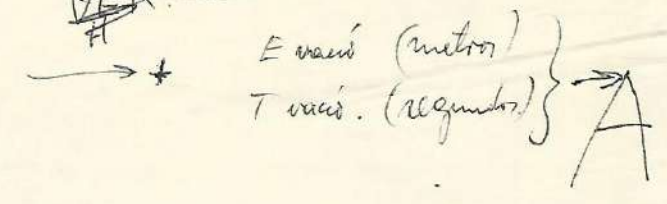 E vació (metros)
T vació. (segundos)
A